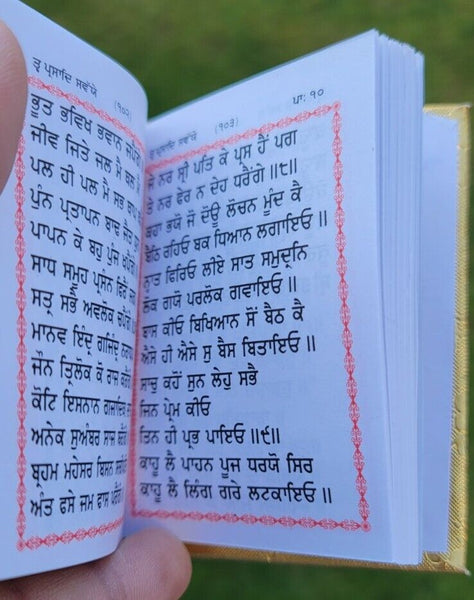 ਤ੍ਵ ਪ੍ਰਸਾਦਿ ਸਵੱਯੇ (੧੦੨)
ਭੂਤ ਭਵਿਖ ਭਵਾਨ
ਜੀਵ ਜਿਤੇ ਜਲ ਮੈ ਥਲ ਮੈ
ਪਲ ਹੀ ਪਲ ਮੈ ਸਭ ਥਾਪ
ਪੁੰਨ ਪ੍ਰਤਾਪਨ ਬਾਢ ਜੈਤ
ਪਾਪਨ ਕੇ ਬਹੁ ਪੁੰਜ
ਸਾਧ ਸਮੂਹ ਪ੍ਰਸੰਨ ਫਿਰੈ
ਸਤ੍ਰ ਸਭੈ ਅਵਲੋਕ
ਮਾਨਵ ਇੰਦ੍ਰ ਗਜਿੰਦ੍ਰ
ਜੌਨ ਤ੍ਰਿਲੋਕ ਕੋ ਰਾਜ
ਕੋਟਿ ਇਸਨਾਨ ਗਜਾਦਿਕ
ਅਨੇਕ ਸੁਅੰਬਰ ਸਾਜ
ਬ੍ਰਹਮ ਮਹੇਸਰ ਬਿਸਨ
ਅੰਤ ਫਸੇ ਜਮ ਫਾਸ
ਤ੍ਵ ਪ੍ਰਸਾਦਿ ਸਵੱਯੇ (੧੦੩) ਪਾ: ੧੦
ਜੇ ਨਰ ਸ੍ਰੀ ਪਤਿ ਕੇ ਪ੍ਰਸ ਹੈਂ ਪਗ
ਤੇ ਨਰ ਫੇਰ ਨ ਦੇਹ ਧਰੈਂਗੇ ॥੮॥
ਕਹਾ ਭਯੋ ਜੋ ਦੋਊ ਲੋਚਨ ਮੂੰਦ ਕੈ
ਬੈਠਿ ਰਹਿਓ ਬਕ ਧਿਆਨ ਲਗਾਇਓ ॥
ਨ੍ਹਾਤ ਫਿਰਿਓ ਲੀਏ ਸਾਤ ਸਮੁਦ੍ਰਨਿ
ਲੋਕ ਗਯੋ ਪਰਲੋਕ ਗਵਾਇਓ ॥
ਬਾਸ ਕੀਓ ਬਿਖਿਆਨ ਸੋਂ ਬੈਠ ਕੈ
ਐਸੇ ਹੀ ਐਸੇ ਸੁ ਬੈਸ ਬਿਤਾਇਓ ॥
ਸਾਚੁ ਕਹੋਂ ਸੁਨ ਲੇਹੁ ਸਭੈ
ਜਿਨ ਪ੍ਰੇਮ ਕੀਓ
ਤਿਨ ਹੀ ਪ੍ਰਭ ਪਾਇਓ ॥੯॥
ਕਾਹੂ ਲੈ ਪਾਹਨ ਪੂਜ ਧਰਯੋ ਸਿਰ
ਕਾਹੂ ਲੈ ਲਿੰਗ ਗਰੇ ਲਟਕਾਇਓ ॥